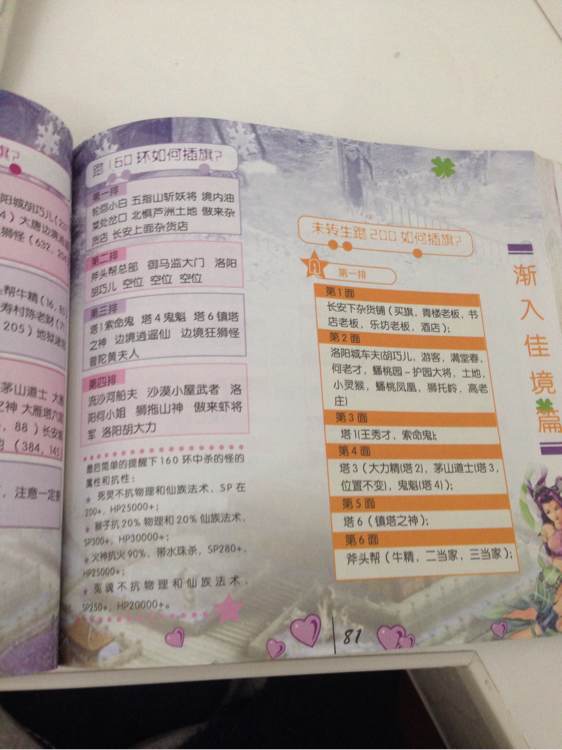 旗?
阳城胡巧儿
大唐边境
狮怪(632,
帮牛精(16,
寿村陈老财
205)地狱迷宫
茅山道士
之神 大雁塔六层
88)长安城
(384,145)
,注意一定要
跑160环如何插旗?
第一排
轮回小白 五指山斩妖将 境内油
菜处岔口 北俱芦洲土地 傲来杂
货店 长安上面杂货店
第二排
斧头帮总部 御马监大门 洛阳
胡巧儿 空位 空位 空位
第三排
塔1索命鬼 塔4鬼魁 塔6镇塔
之神 边境逍遥仙 边境狂狮怪
普陀黄夫人
第四排
流沙河船夫 沙漠小屋武者 洛
阳何小姐 狮拖山神 傲来虾将
军 洛阳胡大力
最后简单的提醒下160环中杀的怪的
属性和抗性:
死灵不抗物理和仙族法术,SP在
200+,HP25000+;
猴子抗20%物理和20%仙族法术,
SP300+,HP30000+;
火神抗火90%,带水珠杀,SP280+,
HP25000+;
冤魂不抗物理和仙族法术,
SP250+,HP20000+。
未转生跑200如何插旗?
第一排
第1面
长安下杂货铺(买旗,青楼老板,书
店老板,乐坊老板,酒店);
第2面
洛阳城车夫(胡巧儿,游客,满堂春,
何老才,蟠桃园-护园大将,土地,
小灵猴,蟠桃凤凰,狮托岭,高老
庄)
第3面
塔1(王秀才,索命鬼);
第4面
塔3(大力精(塔2),茅山道士(塔3,
位置不变),鬼魁(塔4));
第5面
塔6(镇塔之神);
第6面
斧头帮(牛精,二当家,三当家);
渐入佳境篇
81